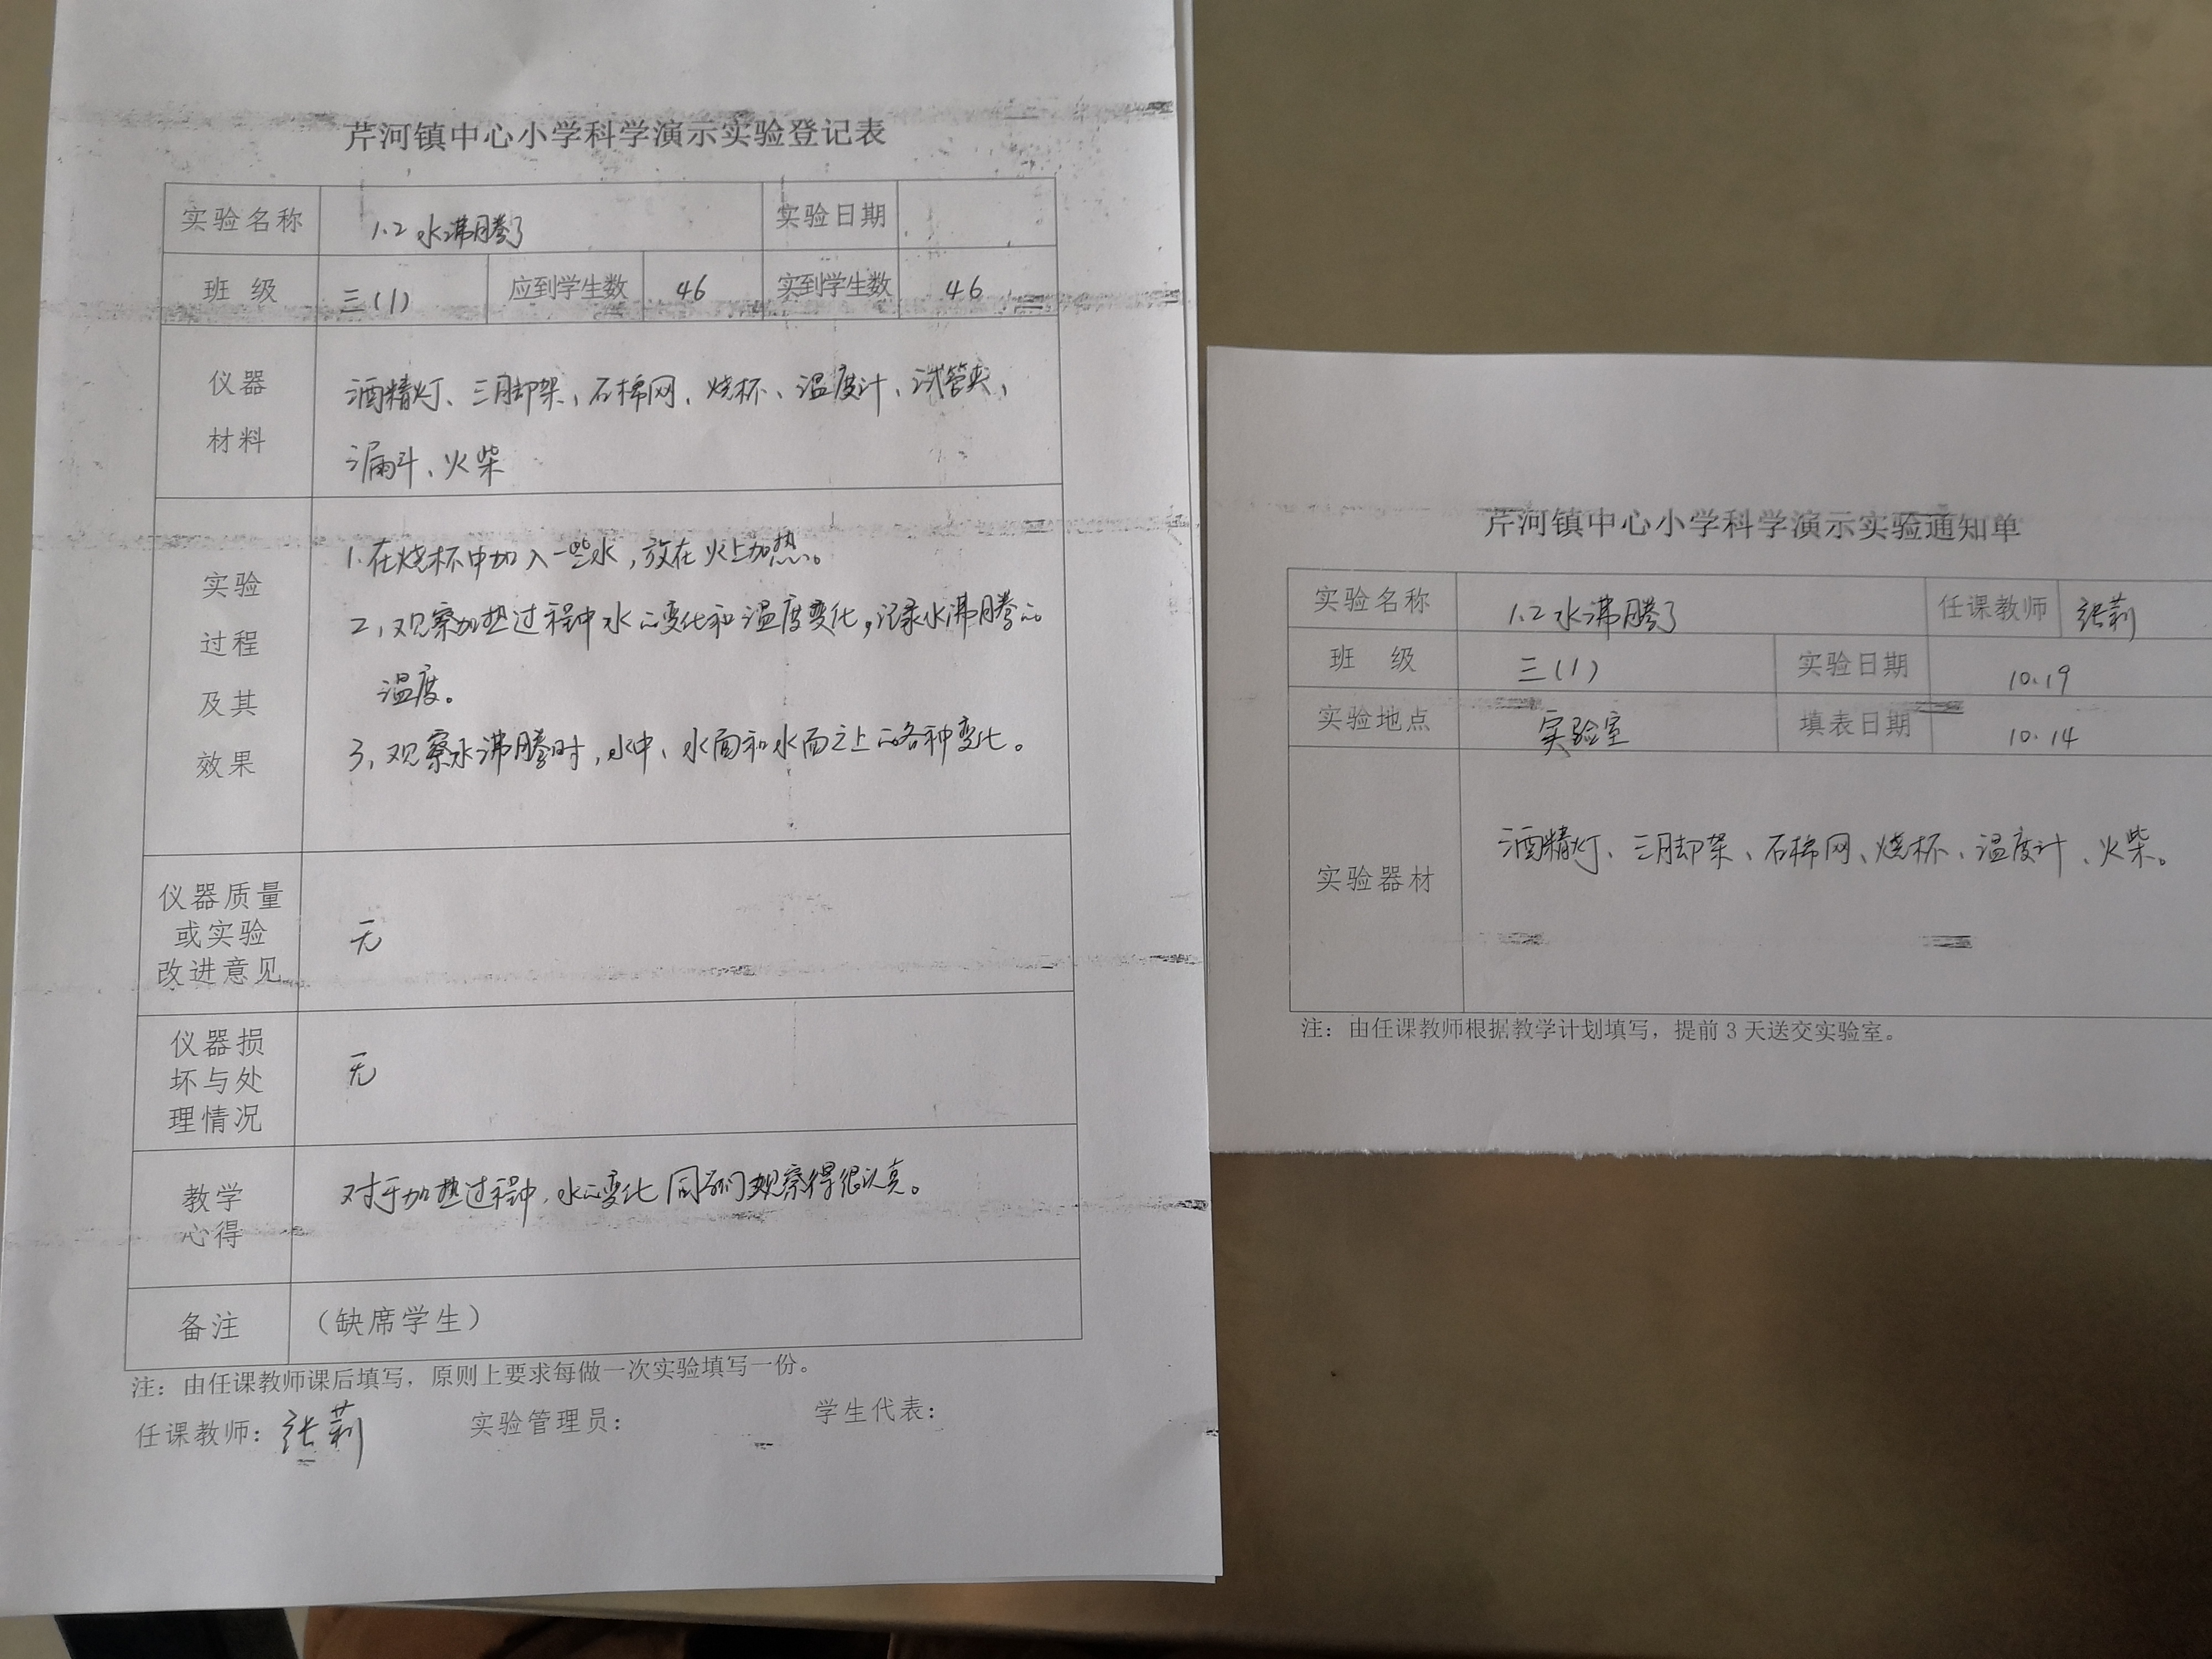 芹河镇中心小学科学演示实验登记表
实验名称 1.2 水沸腾了 实验日期
班 级 三(1) 应到学生数 46 实到学生数 46
仪器
材料
酒精灯、三脚架、石棉网、烧杯、温度计、试管夹、
漏斗、火柴
实验
过程
及其
效果
1.在烧杯中加入一些水,放在火上加热。
2、观察加热过程中水的变化和温度变化,记录水沸腾的
温度。
3、观察水沸腾时,水中、水面和水面之上的各种变化。
仪器质量
或实验
改进意见
无
仪器损
坏与处
理情况
无
教学
心得
对于加热过程中,水的变化同学们观察得很认真。
备注 (缺席学生)
注:由任课教师课后填写,原则上要求每做一次实验填写一份。
任课教师:张莉 实验管理员: 学生代表:
芹河镇中心小学科学演示实验通知单
实验名称 1.2 水沸腾了 任课教师 张莉
班 级 三(1) 实验日期 10.19
实验地点 实验室 填表日期 10.14
实验器材 酒精灯、三脚架、石棉网、烧杯、温度计、火柴。
注:由任课教师根据教学计划填写,提前 3 天送交实验室。